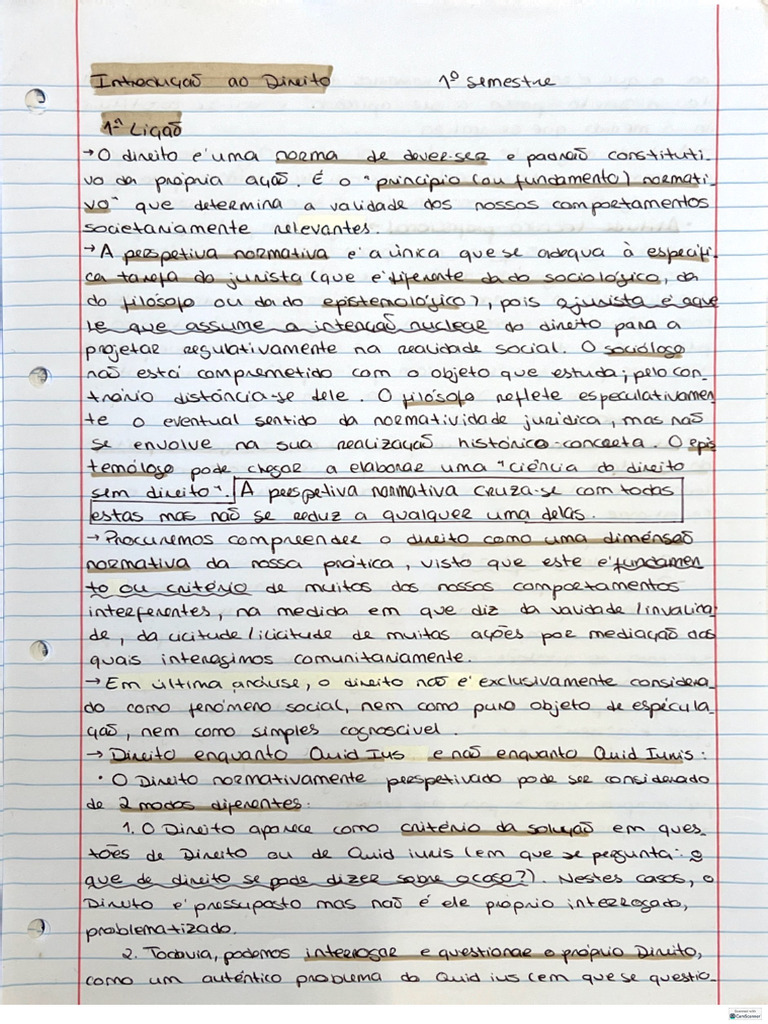 Introdução ao Direito 1º semestre
1ª Lição
→ O direito é uma norma de dever-ser e padrão constituti-
vo da própria ação. É o "princípio (ou fundamento) normati-
vo" que determina a validade dos nossos comportamentos
societariamente relevantes.
→ A perspetiva normativa é a única que se adequa à específi-
ca tarefa do jurista (que é diferente da do sociológico, da
do filósofo ou da do epistemológico), pois o jurista é aque
le que assume a intenção nuclear do direito para a
projetar regulativamente na realidade social. O sociólogo
não está comprometido com o objeto que estuda; pelo con-
trário distância-se dele. O filósofo reflete especulativamen
te o eventual sentido da normatividade jurídica, mas não
se envolve na sua realização histórico-concreta. O epis
temólogo pode chegar a elaborar uma "ciência do direito
sem direito". A perspetiva normativa cruza-se com todas
estas mas não se reduz a qualquer uma delas.
→ Procuremos compreender o direito como uma dimensão
normativa da nossa prática, visto que este é fundamen
to ou critério de muitos dos nossos comportamentos
interferentes, na medida em que diz da validade/invalida-
de, da licitude/ilicitude de muitas ações por mediação das
quais interagimos comunitariamente.
→ Em última análise, o direito não é exclusivamente considera-
do como fenómeno social, nem como puro objeto de especula-
ção, nem como simples cognoscível.
→ Direito enquanto Quid Ius e não enquanto Quid Iuris:
• O Direito normativamente perspetivado pode ser considerado
de 2 modos diferentes:
1. O Direito aparece como critério da solução em ques-
tões de Direito ou de Quid iuris (em que se pergunta: o
que de direito se pode dizer sobre o caso?). Nestes casos, o
Direito é pressuposto mas não é ele próprio interrogado,
problematizado.
2. Todavia, podemos interrogar e questionar o próprio Direito,
como um autêntico problema do Quid ius (em que se questio-
CamScanner